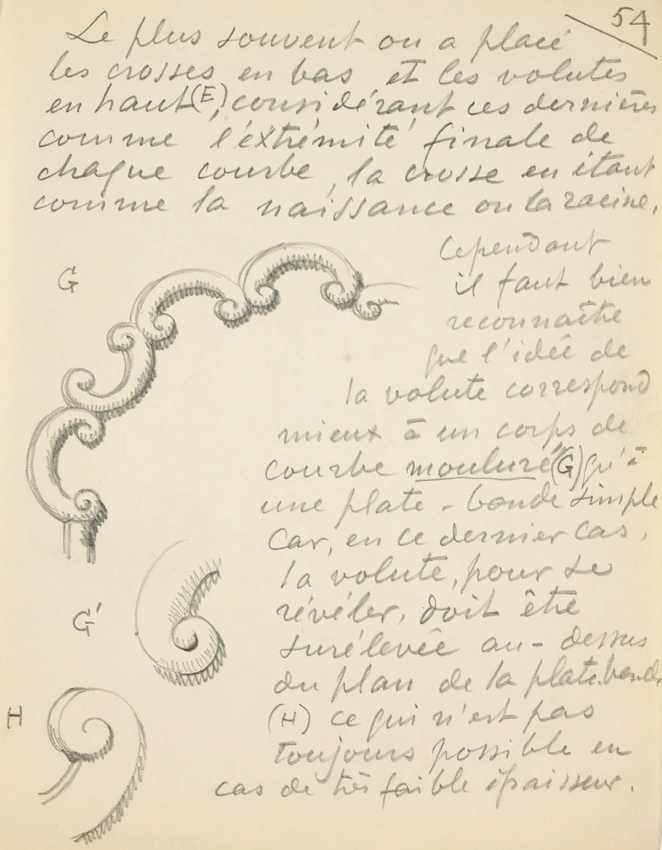 54
Le plus souvent on a placé
les crosses en bas et les volutes
en haut (E), considérant ces dernières
comme l'éxtrémité finale de
chaque courbe, la crosse en étant
comme la naissance ou la racine.
Cependant
G
il faut bien
reconnaître
que l'idée de
la volute correspond
mieux à un corps de
courbe mouluré (G) qu'à
une plate-bande simple
car, en ce dernier cas,
la volute, pour se
révéler, doit être
G'
surélevée au-dessus
du plan de la plate.bande
H
(H) ce qui n'est pas
toujours possible en
cas de très faible épaisseur.